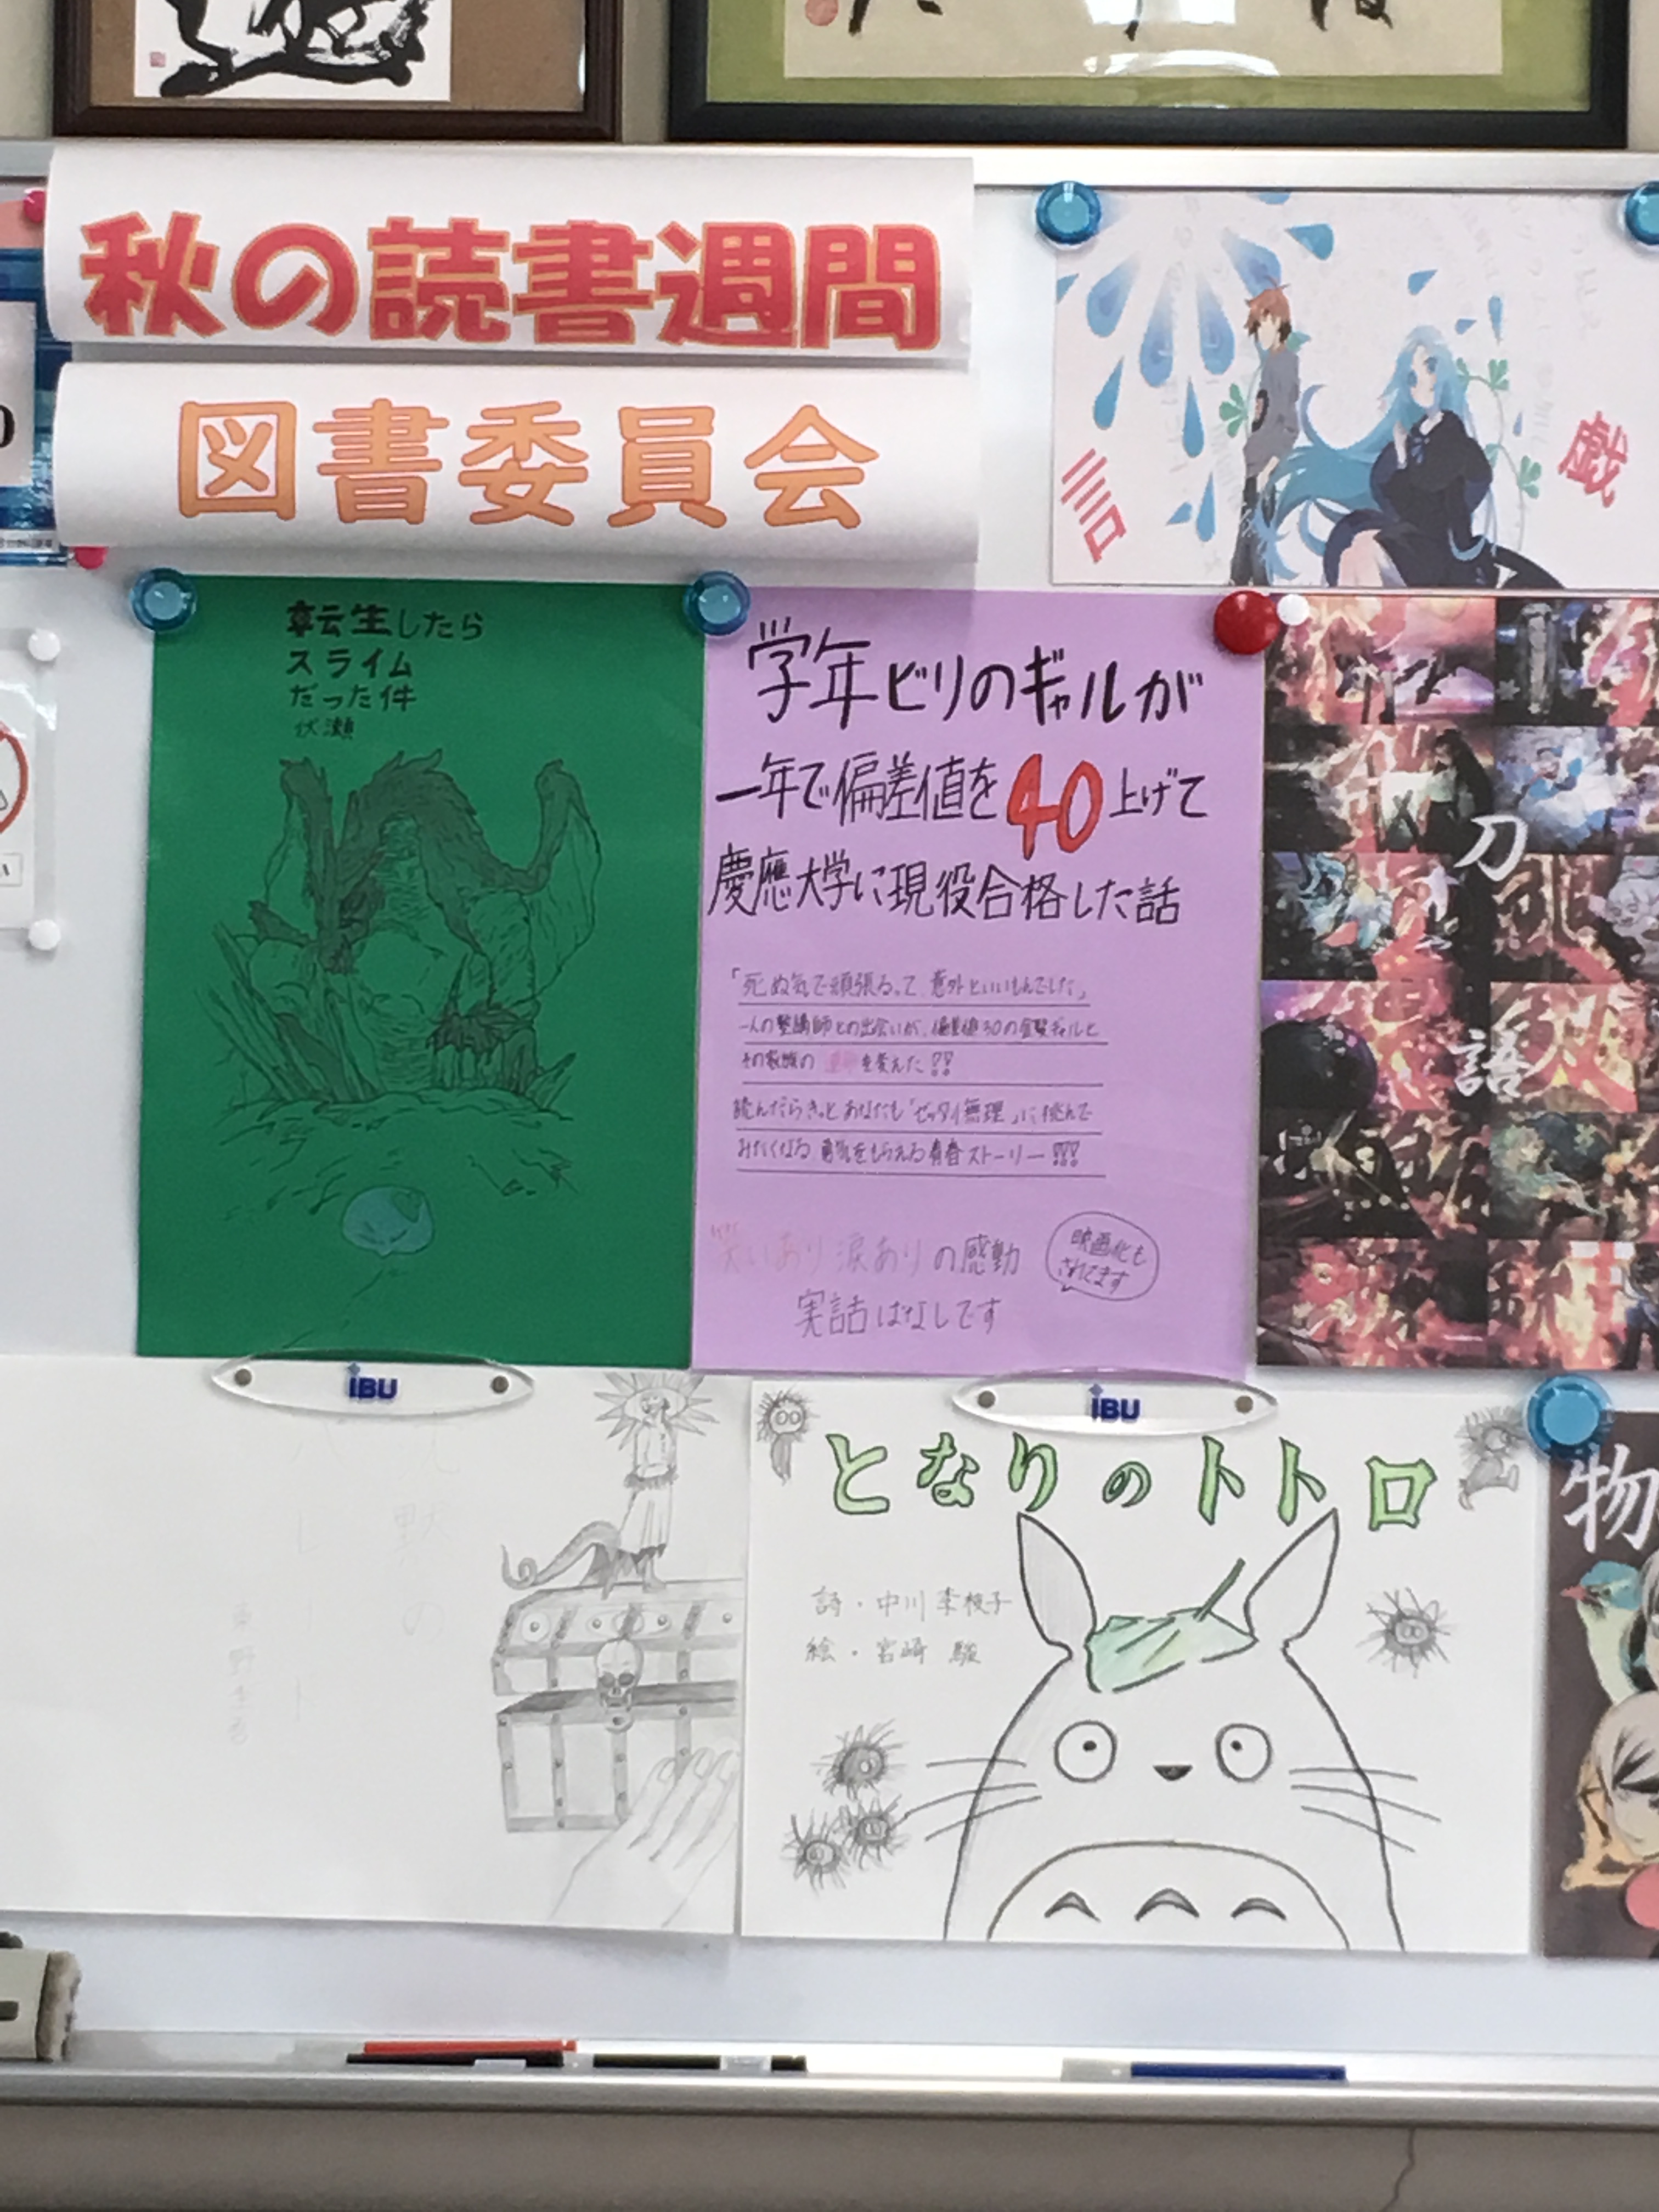 秋の読書週間
図書委員会
言
戯
転生したら
スライム
だった件
伏瀬
学年ビリのギャルが
一年で偏差値を40上げて
慶應大学に現役合格した話
「死ぬ気で頑張るって 意外といいもんでした」
一人の塾講師との出会いが、偏差値30の金髪ギャルと
その家族の 運命を変えた!?
読んだらきっとあなたも「ゼッタイ無理」に挑んで
みたくなる 勇気をもらえる青春ストーリー!!!
笑いあり涙ありの感動
実話はなしです
映画化も
されてます
刀
語
iBU
iBU
沈黙の
パレード
東野圭吾
となりのトトロ
詩・中川 李枝子
絵・宮崎 駿
物